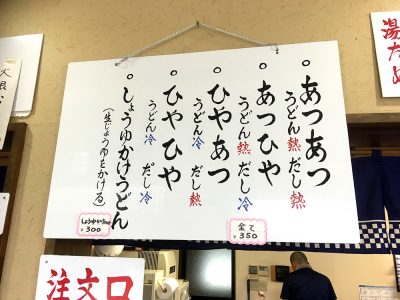 あつあつ
うどん熱 だし熱
あつひや
うどん熱 だし冷
ひやあつ
うどん冷 だし熱
ひやひや
うどん冷 だし冷
しょうゆかけうどん
(生じょうゆをかける)
全て
¥350
しょうゆかけうどん
¥300
注文口
湯だめ
大根お